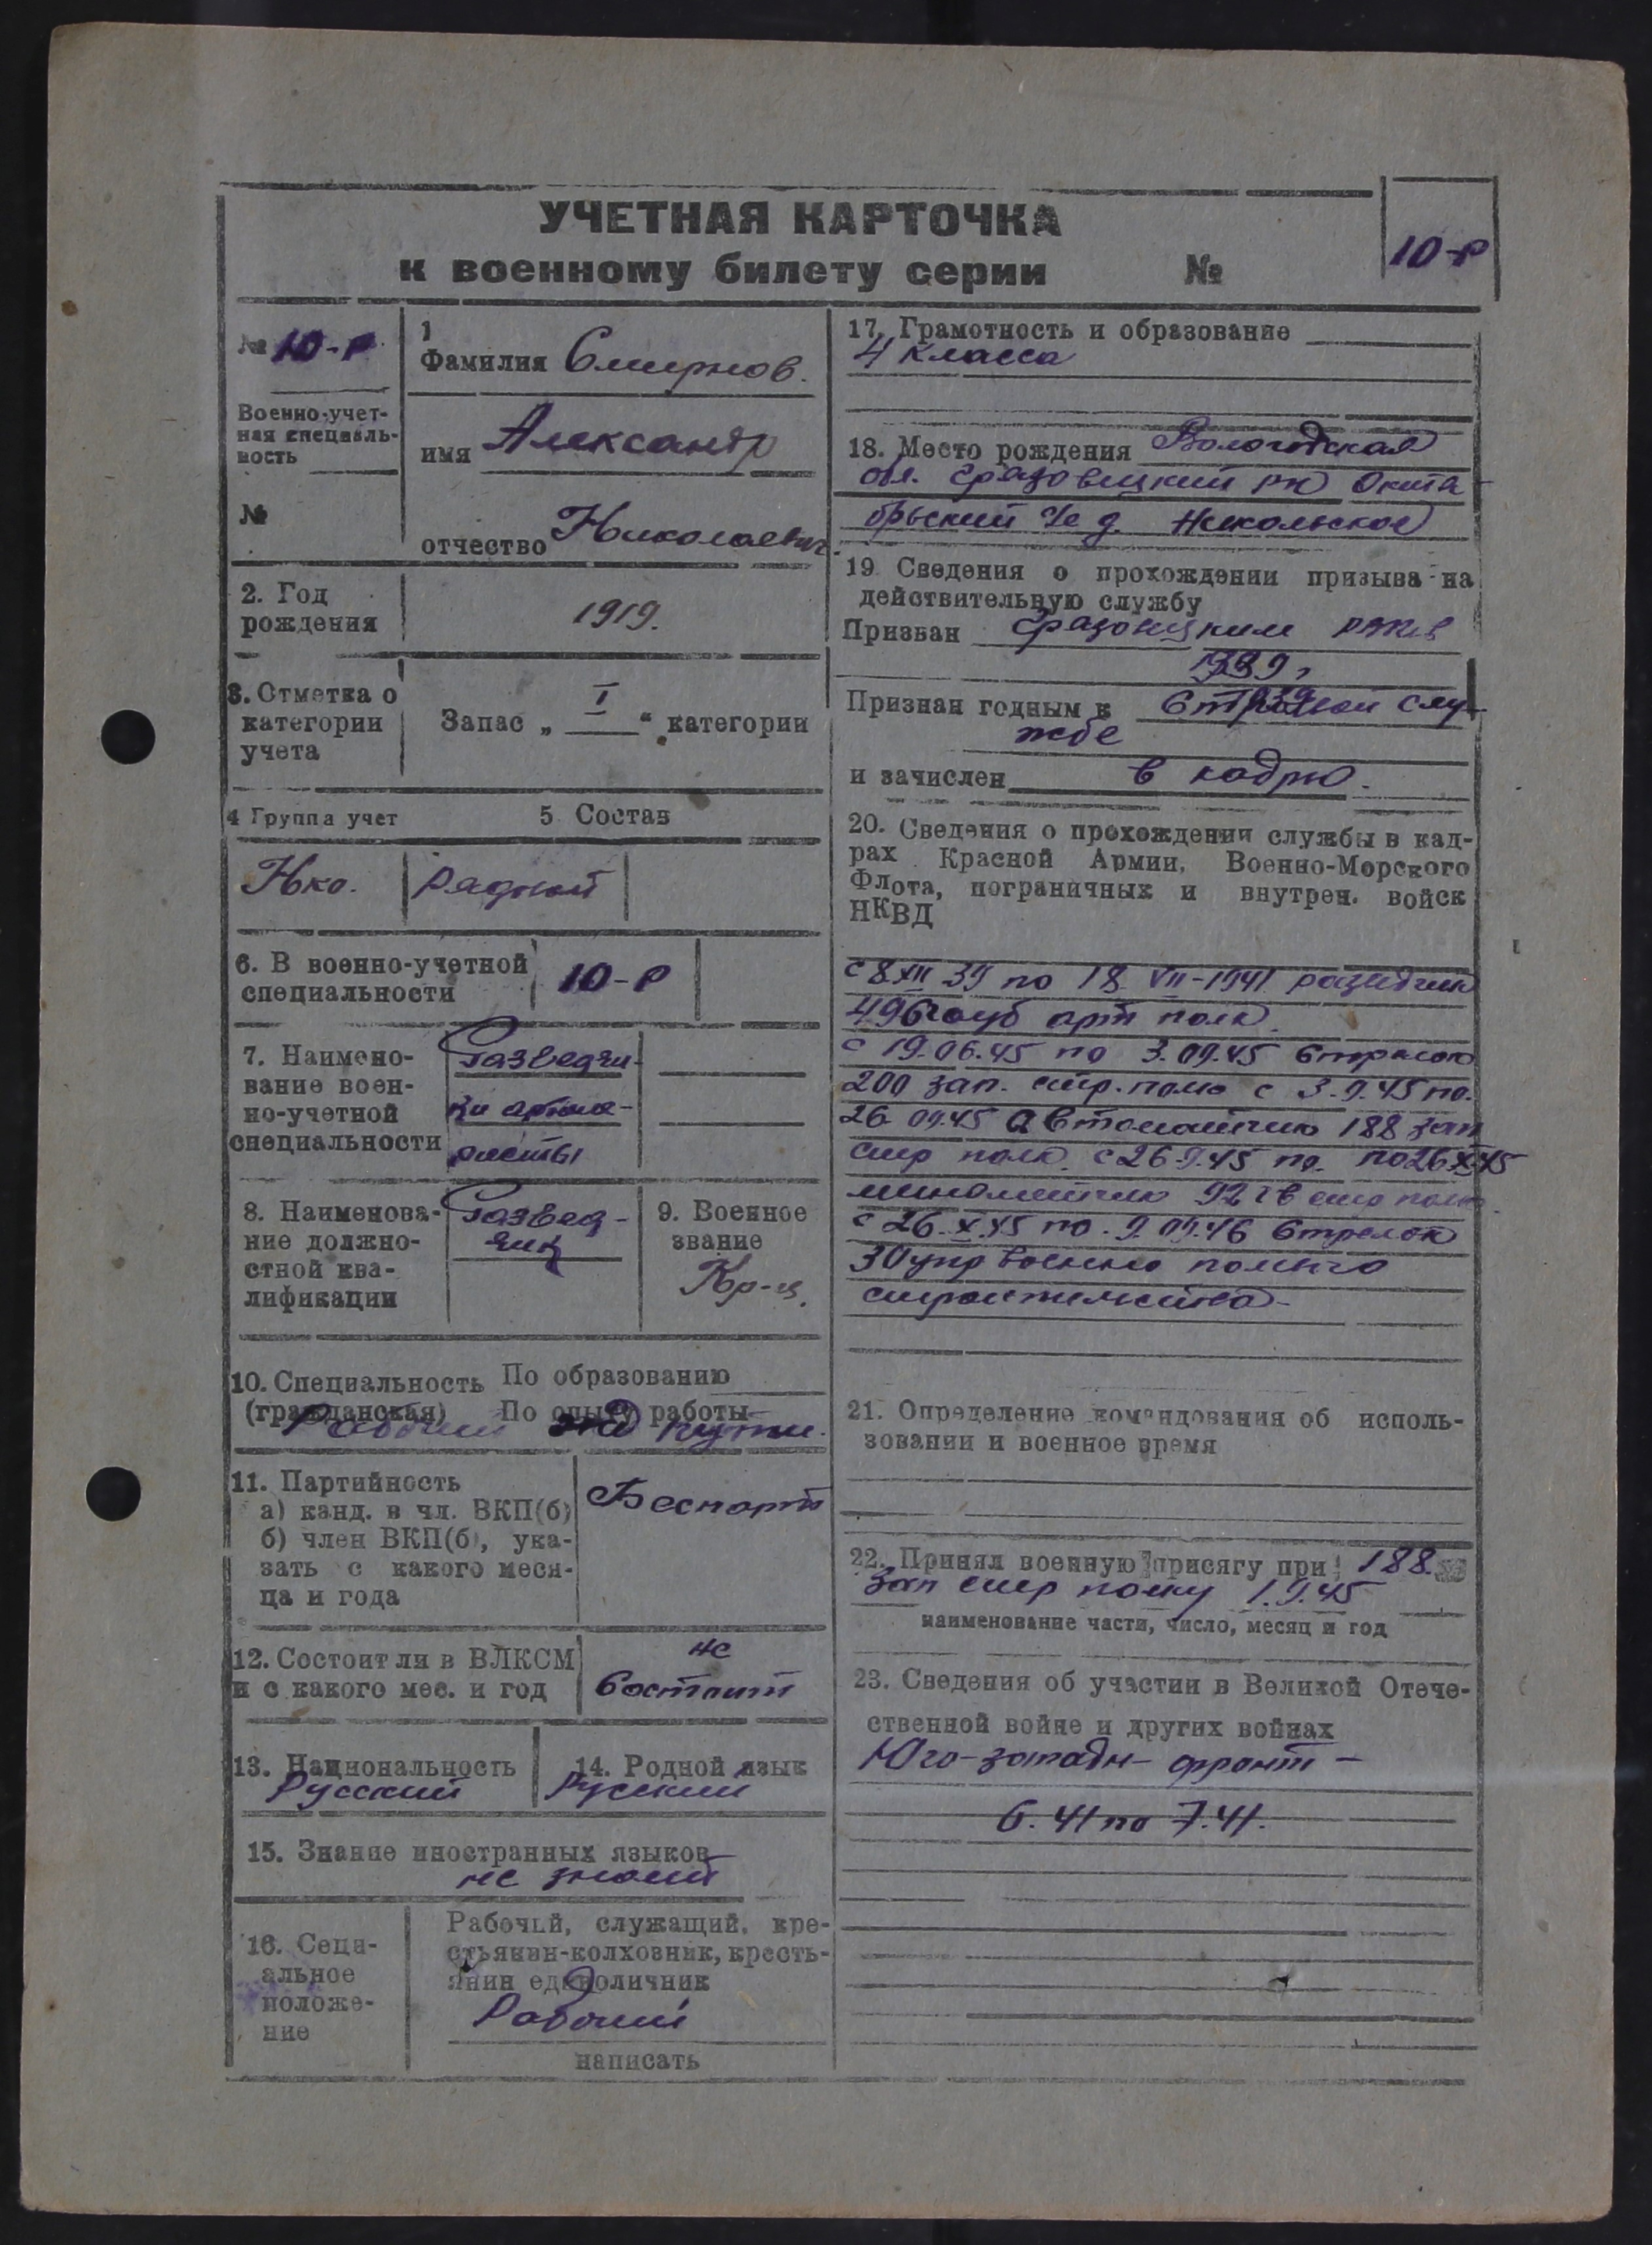 УЧЕТНАЯ КАРТОЧКА
к военному билету серии №
10-Р
№ 10-Р
Военно-учет-
ная специаль-
ность
№
1
Фамилия Смирнов.
имя Александр
отчество Николаевич
2. Год
рождения
1919.
3. Отметка о
категории
учета
Запас „ I “ категории
4 Группа учет
5 Состав
Нко.
рядной
6. В военно-учетной
специальности
10-Р
7. Наимено-
вание воен-
но-учетной
специальности
Разведчи-
ки артил-
листы
8. Наименова-
ние должно-
стной ква-
лификации
Развед-
чик
9. Военное
звание
Кр-ц.
10. Специальность По образованию
(гражданская) По опыту работы
Рабочий жд пути.
11. Партийность
а) канд. в чл. ВКП(б)
б) член ВКП(б), ука-
зать с какого меся-
ца и года
Беспарт
12. Состоит ли в ВЛКСМ
и с какого мес. и год
не
состоит
13. Национальность
Русский
14. Родной язык
Русский
15. Знание иностранных языков
не знает
16. Соци-
альное
положе-
ние
Рабочий, служащий, кре-
стьянин-колхозник, кресть-
янин единоличник
Рабочий
написать
17. Грамотность и образование
4 класса
18. Место рождения Вологодская
обл. Грязовецкий рн Октя-
брьский с/с д. Никольское
19 Сведения о прохождении призыва на
действительную службу
Призван Грязовецким РВКв
1939 г
Признан годным к строевой слу-
жбе
и зачислен в кадрю.
20. Сведения о прохождении службы в кад-
рах Красной Армии, Военно-Морского
Флота, пограничных и внутрен. войск
НКВД
с 8 XII 39 по 18 VII-1941 разведчик
496 гауб арт полк.
с 19.06.45 по 3.09.45 стрелок
200 зап. стр. полк с 3.9.45 по.
26.09.45 автоматчик 188 зап
стр полк. с 26.9.45 по. по 26 X 45
минометчик 92 гв стр полк.
с 26.X.45 по. 9.09.46 стрелок
30 упр военно полего
строительства-
21. Определение командования об исполь-
зовании и военное время
22. Принял военную присягу при 188.
зап стр полку 1.9.45
наименование части, число, месяц и год
23. Сведения об участии в Великой Отече-
ственной войне и других войнах
Юго-западн- фронт -
6.41 по 7.41.